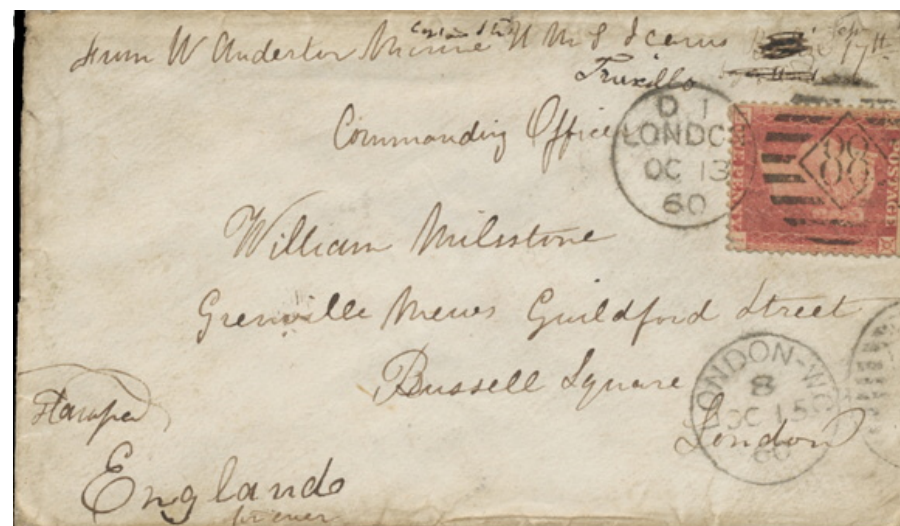 From W Anderton Marine H M S Icarus Sep 17th
Truxillo
Commanding Officer
D 1
LONDON
OC 13
60
88
POSTAGE
William Milestone
Grenville Mews Guildford Street
Russell Square
London
LONDON-W
8
OC 15
60
Stamped
England
for ever